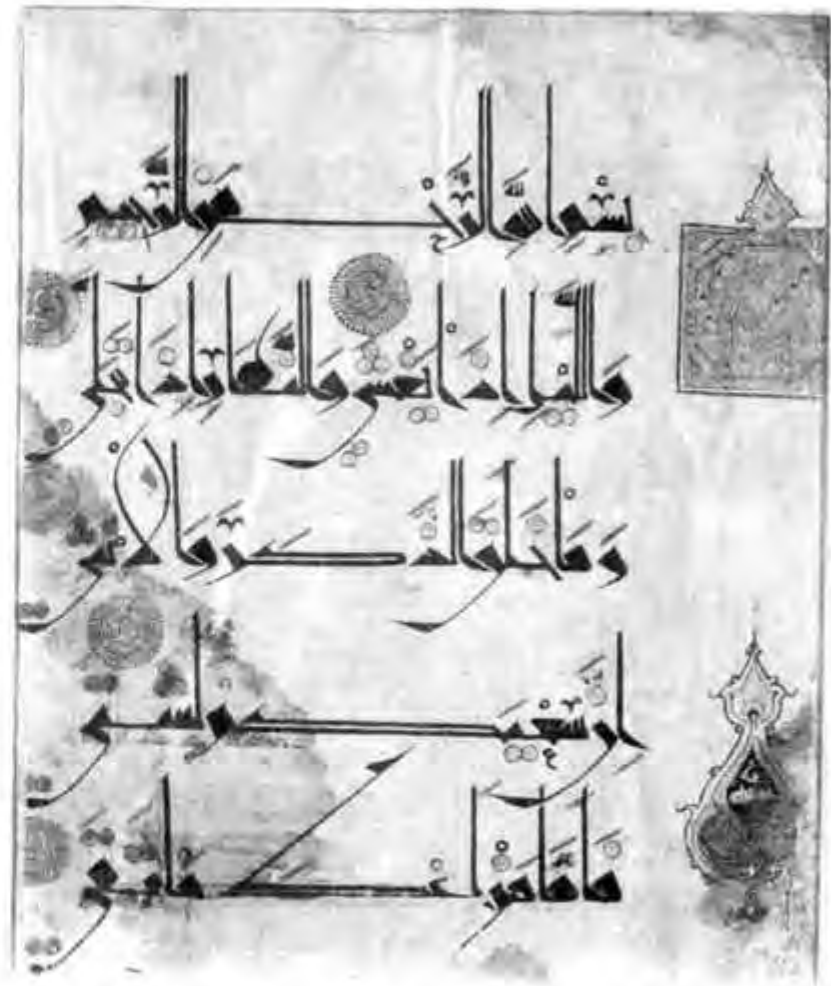 بِسْمِ اللَّهِ الرَّحْمَنِ الرَّحِيمِ
وَالَّيْلِ إِذَا يَغْشَى وَالنَّهَارِ إِذَا تَجَلَّى
وَمَا خَلَقَ الذَّكَرَ وَالْأُنْثَى
إِنَّ سَعْيَكُمْ لَشَتَّى
فَأَمَّا مَنْ أَعْطَى وَاتَّقَى